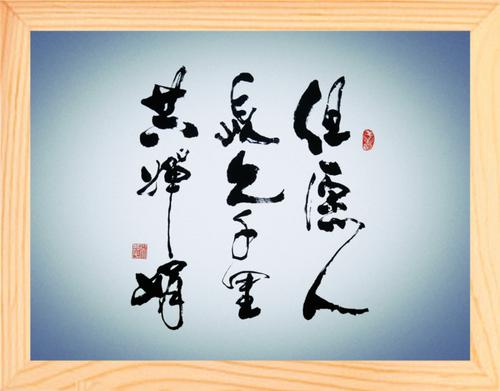 但愿人
長久千里
共嬋娟